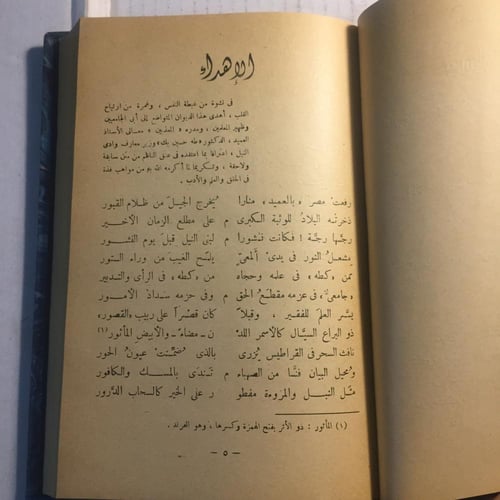 الإهداء
فى نشوة من غبطة النفس، وغمرة من ارتياح
القلب، أهدى هذا الديوان المتواضع إلى أبى الجامعيين
وظهير المعلمين، ومدره « المعذبين » معالى الأستاذ
العميد، الدكتور « طه حسين بك » وزير معارف وادى
النيل، اعترافا بما اعتقده فى عنق الناظم من منن سابقة
ولاحقة، وتكريما لما أكرمه الله به من مواهب فذة
فى الخلق والعلم والأدب.
رفعت مصر « بالعميد » منارا يُخرج الجيل من ظلام القبور
ذخرته البلادُ للوثبة الكبرى م على مطلع الزمان الأخير
رجّها رجّة ! فكانت نشورا لبنى النيل قبل يوم النشور
مشعل النور فى يدىْ ألمعىّ يلمح الغيب من وراء الستور
من « كطه » فى علمه وحجاه م من « كطه » فى الرأى والتدبير
« جامعىّ » فى عزمه مقطع الحق م وفى حزمه سداد الأمور
يسّر العلمَ للفقير، وقبلا كان قصرا على ربيب « القصور »
ذو اليراع السيّال كالأسمر اللد ن ـ مضاءً ـ والأبيضِ المأثور (١)
نافث السحر فى القراطيس يُزرى بالذى ضُمّنت عيون الحور
ومُحيل البيان فنّا من الصهباء م تندَى بالمسك والكافور
مثل النبل والمروءة مفطو ر على الخير كالسحاب الدَّرور
(١) المأثور : ذو الأثر بفتح الهمزة وكسرها، وهو الفرند .
— ٥ —